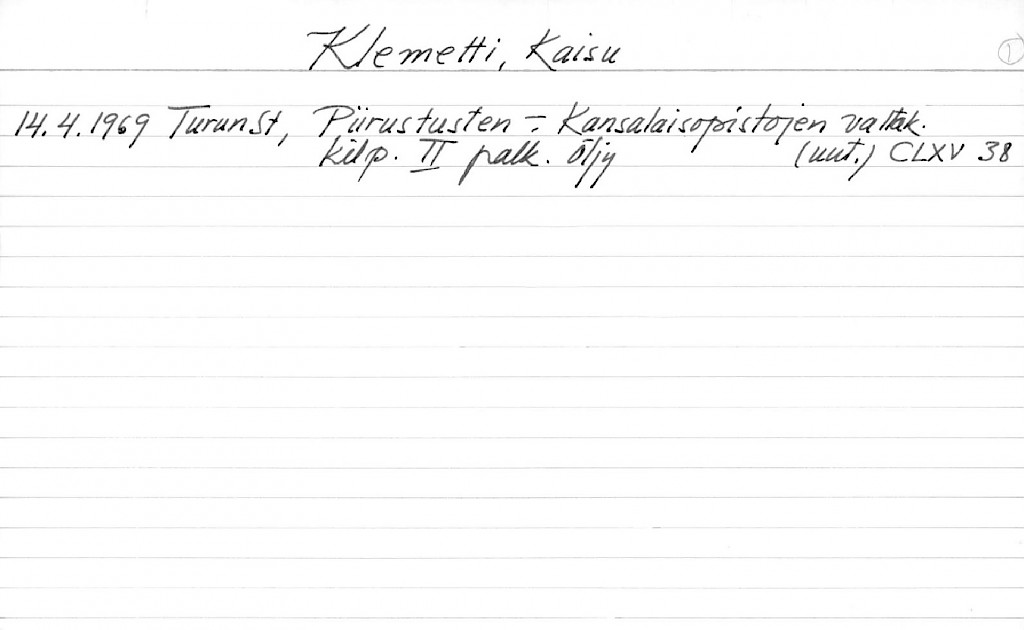 Klemetti, Kaisu
1
14.4.1969 TurunSt, Piirustusten - Kansalaisopistojen valtak.
kilp. II palk. öljy (uut.) CLXV 38